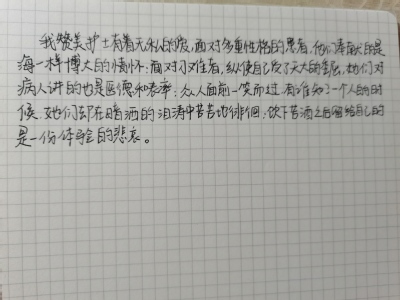 我赞美护士有着无私的爱,面对多重性格的患者,他们奉献的是
海一样博大的情怀;面对刁难者,纵使自己受了天大的委屈,她们对
病人讲的也是医德和表率;众人面前一笑而过,有谁知一个人的时
候,她们却在暗洒的泪涛中苦苦地徘徊;饮下苦酒之后留给自己的
是一份体验的悲哀。